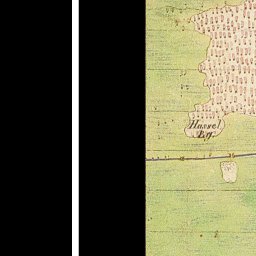 Hassel
Eg.